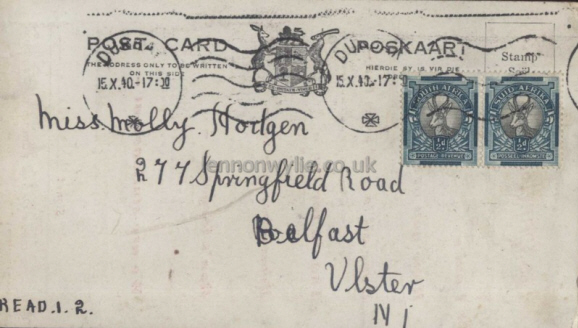 POST CARD
POSKAART
THE ADDRESS ONLY TO BE WRITTEN
ON THIS SIDE
HIERDIE SY IS VIR DIE
Stamp
15.X.40.-17:30
15.X.40.-17:30
SOUTH AFRICA
POSTAGE REVENUE
Miss Molly Hodgen
lennonwylie.co.uk
277 Springfield Road
Belfast
Ulster
NI
READ.1.2.